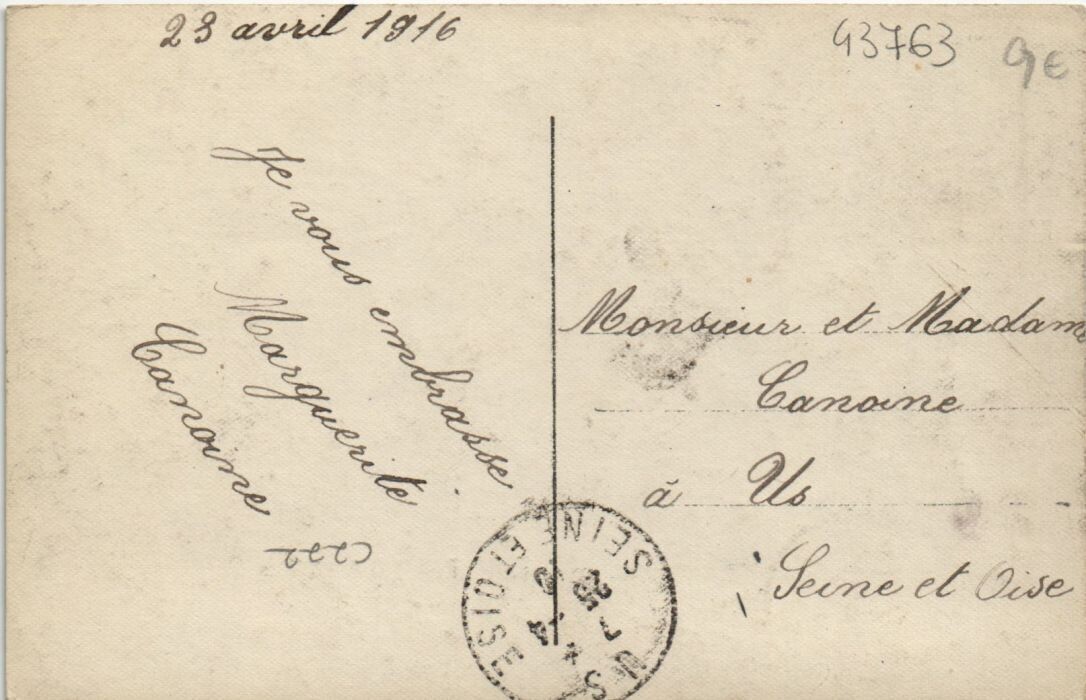 23 avril 1916
43763
9€
Je vous embrasse
Marguerite
Canoine
Monsieur et Madam
Canoine
à Us
Seine et Oise
US
SEINE ET OISE
25